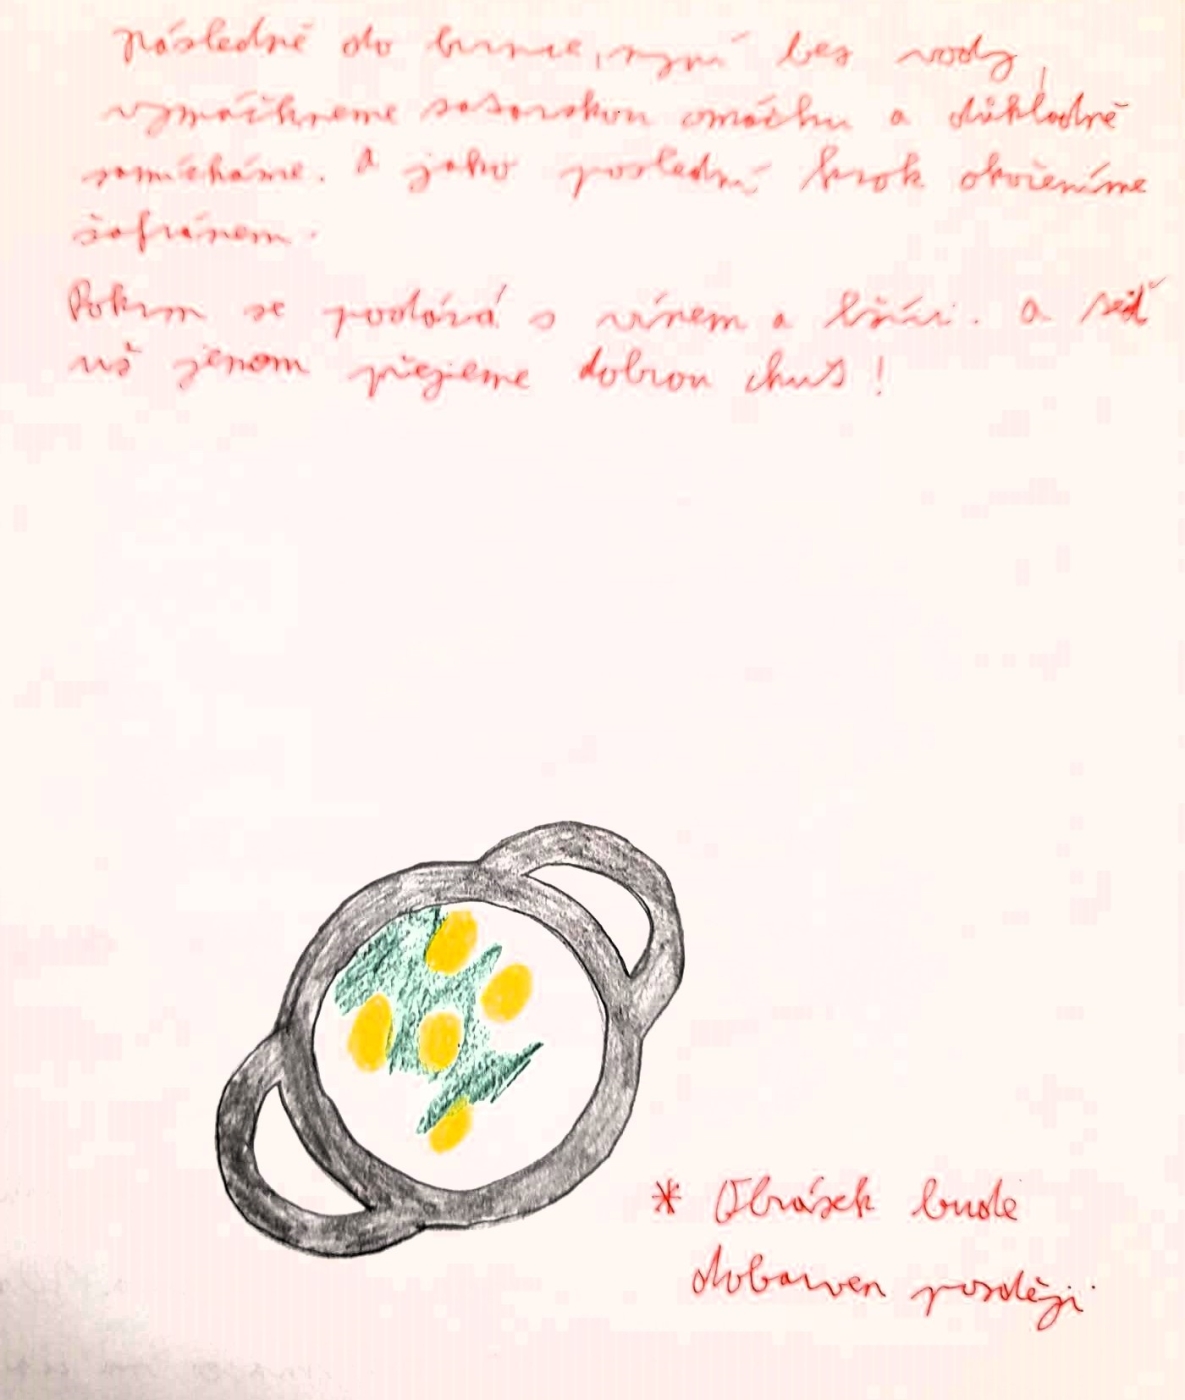 následně do hrnce, nyní bez vody,
vymáčkneme tatarskou omáčku a důkladně
zamícháme. A jako poslední krok okořeníme
šafránem.
Pokrm se podává s vínem a lžící. a teď
už jenom přejeme dobrou chuť!
* Obrázek bude
dobarven později